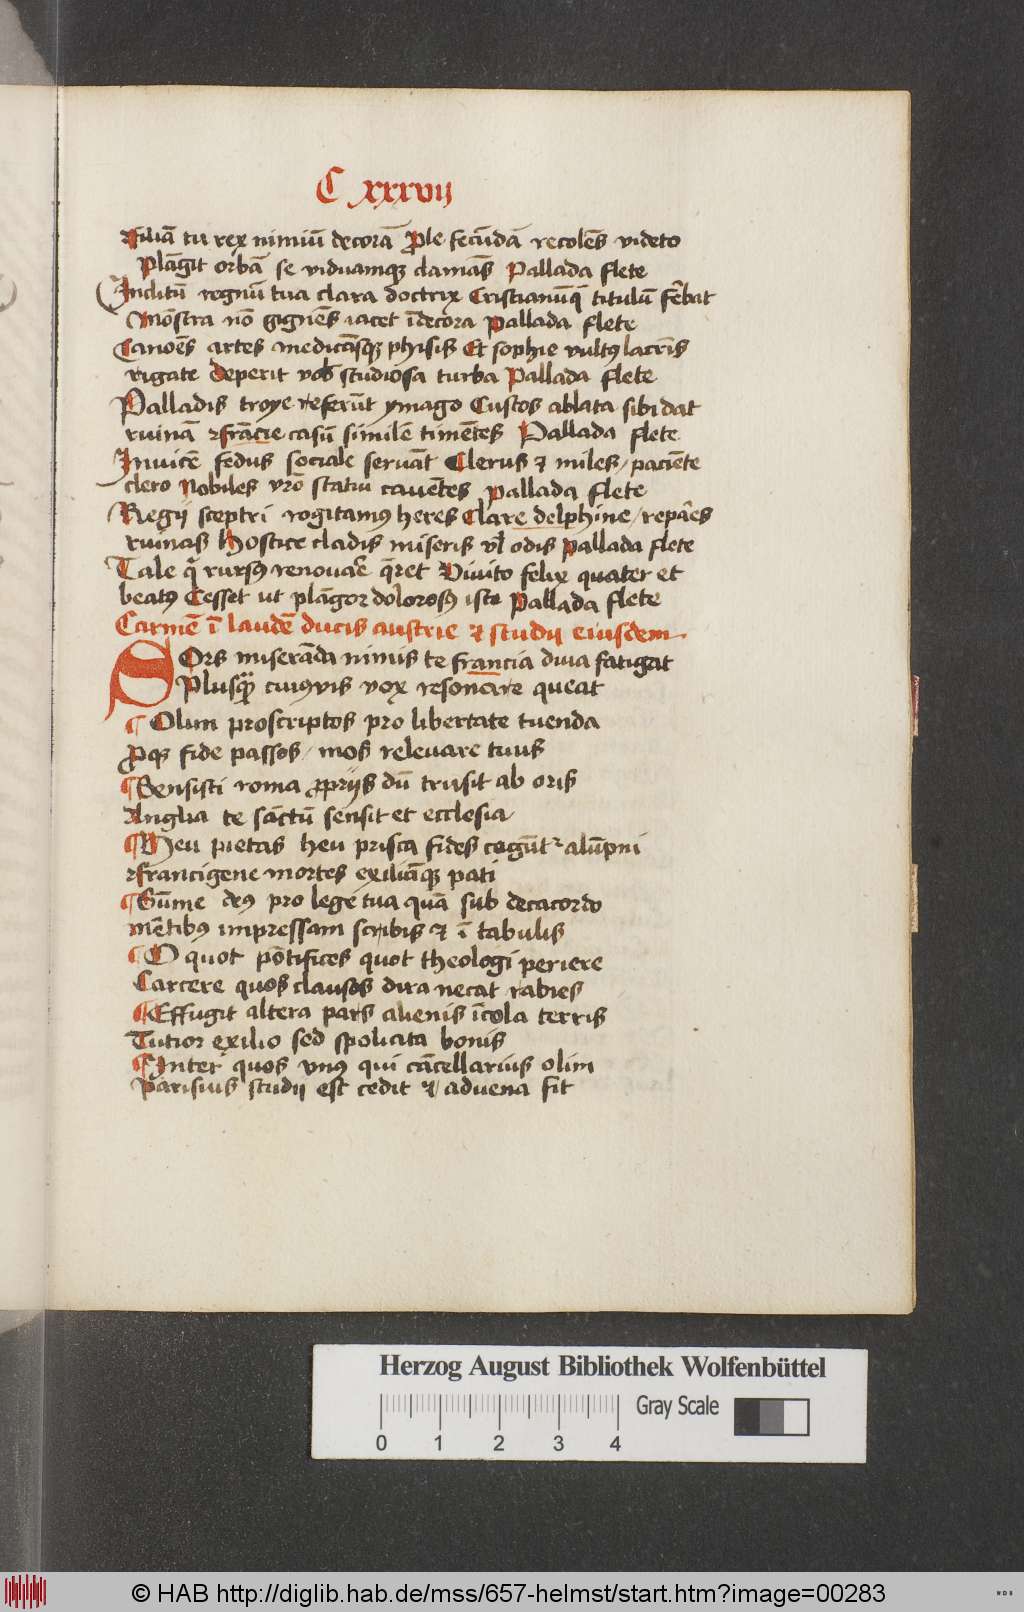 C xxxvij
Filiā tu rex nimiū decorā Ple fecūdā recolēs videto
Plāgit orbā se viduamqꝫ clamās Pallada flete
Inclitū regnū tua clara doctrix Cristianūq titulū ferebat
Mōstra nō gignēs iacet īdecora Pallada flete
Canoēs artes medicāsqꝫ phisis Et sophie vultꝰ lacrīs
rigate deperit vob studiosa turba Pallada flete
Palladis troye referūt ymago Custos ablata sibi dat
ruinā francie casū similē timētes Pallada flete
Invicē fedus sociale servāt Clerus et miles / paciēte
clero Nobiles vrō statui cavētes pallada flete
Regij sceptri rogitamꝰ heres Clare delphine / repares
ruinas Hostice cladis miseris vl odis pallada flete
Tale q rursꝰ renovare qret Vivito felix quater et
beatꝰ Cesset ut plāgor dolorosꝰ iste Pallada flete
Carmē ī laudē ducis austrie et studij eiusdem
SOrs miserāda nimis te francia diua fatigat
Plusqꝫ cuiꝰvis vox resonare queat
¶ Olim proscriptos pro libertate tuenda
Proqꝫ fide passos / mos relevare tuus
¶ Sensisti roma proprijs dū trusit ab oris
Anglia te sāctū sensit et ecclesia
¶ Heu pietas heu prisca fides cogūtᷣ alūpni
francigene mortes exiliāqꝫ pati
¶ Sūme deꝰ pro lege tua quā sub decacordo
mētibꝰ impressam scribis et ī tabulis
¶ O quot pōtifices quot theologi periere
Carcere quos clausos dira necat rabies
¶ Effugit altera pars alienis īcola terris
Tutior exilio sed spoliata bonis
¶ Inter quos vnꝰ qui cācellarius olim
Parisius studij est cedit et advena fit
Herzog August Bibliothek Wolfenbüttel
Gray Scale
0 1 2 3 4
© HAB http://diglib.hab.de/mss/657-helmst/start.htm?image=00283